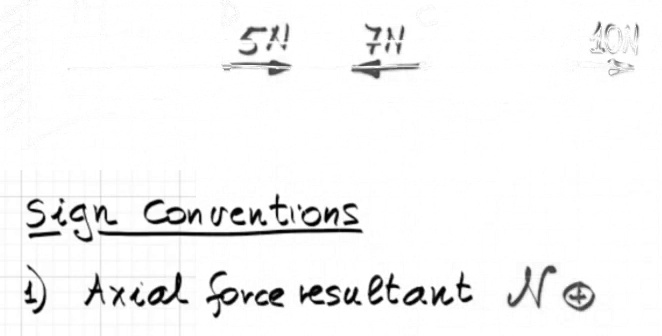 5N 7N 10N
Sign Conventions
1) Axial force resultant N ⊕